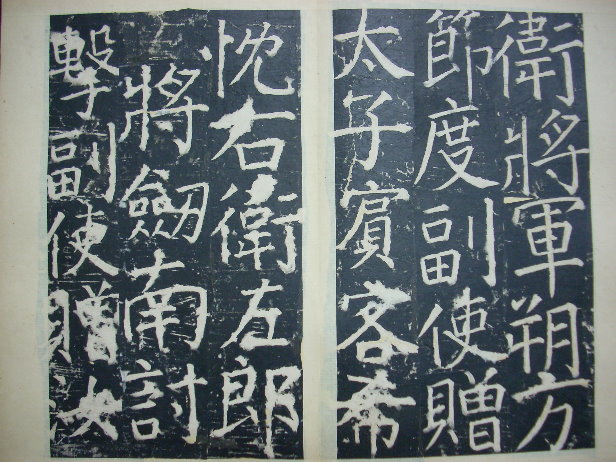 衛將軍朔方
節度副使贈
太子賓客希
忱右衛左郎
將劔南討
擊副使贈汝